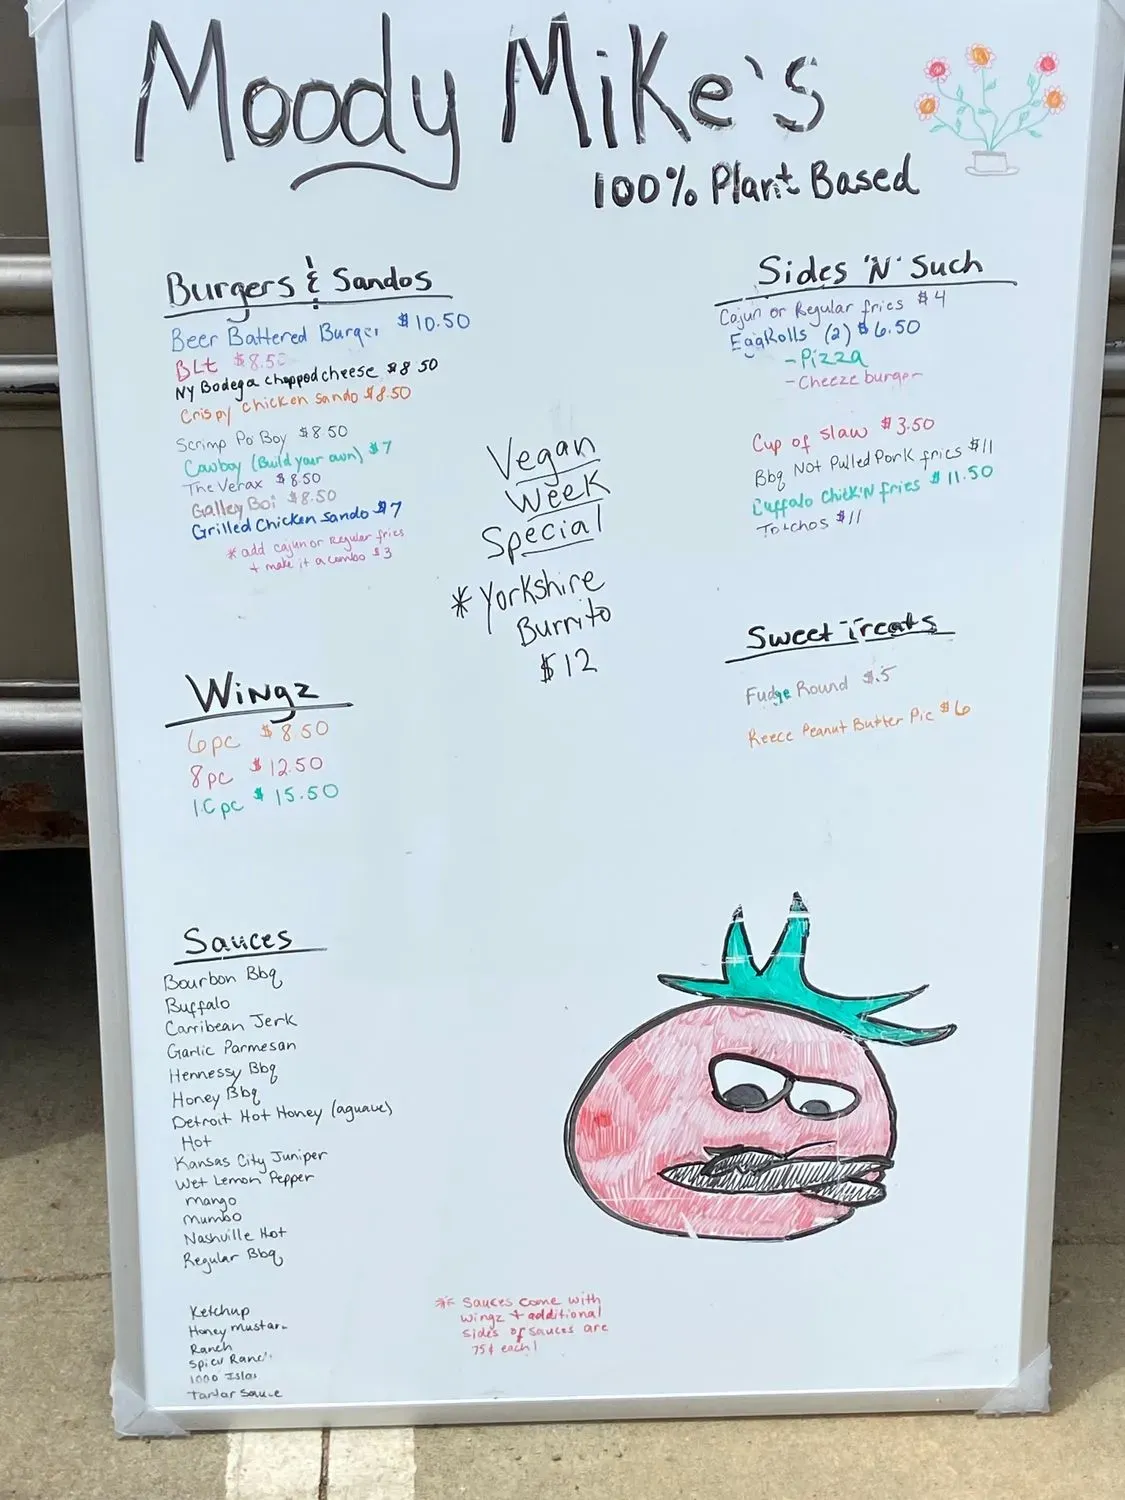 Moody Mike's
100% Plant Based
Burgers & Sandos
Beer Battered Burger $10.50
BLt $8.50
NY Bodega chopped cheese $8 50
Crispy chicken sando $8.50
Scrimp Po Boy $8.50
Cowboy (Build your own) $7
The Verax $8.50
Galley Boi $8.50
Grilled Chicken Sando $7
* add cajun or Regular fries
+ make it a combo $3
Wingz
6pc $8.50
8pc $12.50
10pc $15.50
Sauces
Bourbon Bbq
Buffalo
Carribean Jerk
Garlic Parmesan
Hennessy Bbq
Honey Bbq
Detroit Hot Honey (aguave)
Hot
Kansas City Juniper
Wet Lemon Pepper
mango
mumbo
Nashville Hot
Regular Bbq
Ketchup
Honey mustar
Ranch
Spicy Ranch
1000 Islan
Tartar Sauce
Vegan
Week
Special
* Yorkshire
Burrito
$12
Sides 'N' Such
Cajun or Regular fries $4
EggRolls (2) $6.50
-Pizza
-Cheeze burger
Cup of slaw $3.50
Bbq NOT Pulled Pork fries $11
Buffalo Chick'N fries $11.50
Totchos $11
Sweet Treats
Fudge Round $.5
Reece Peanut Butter Pie $6
* Sauces come with
wingz + additional
sides of sauces are
75¢ each!